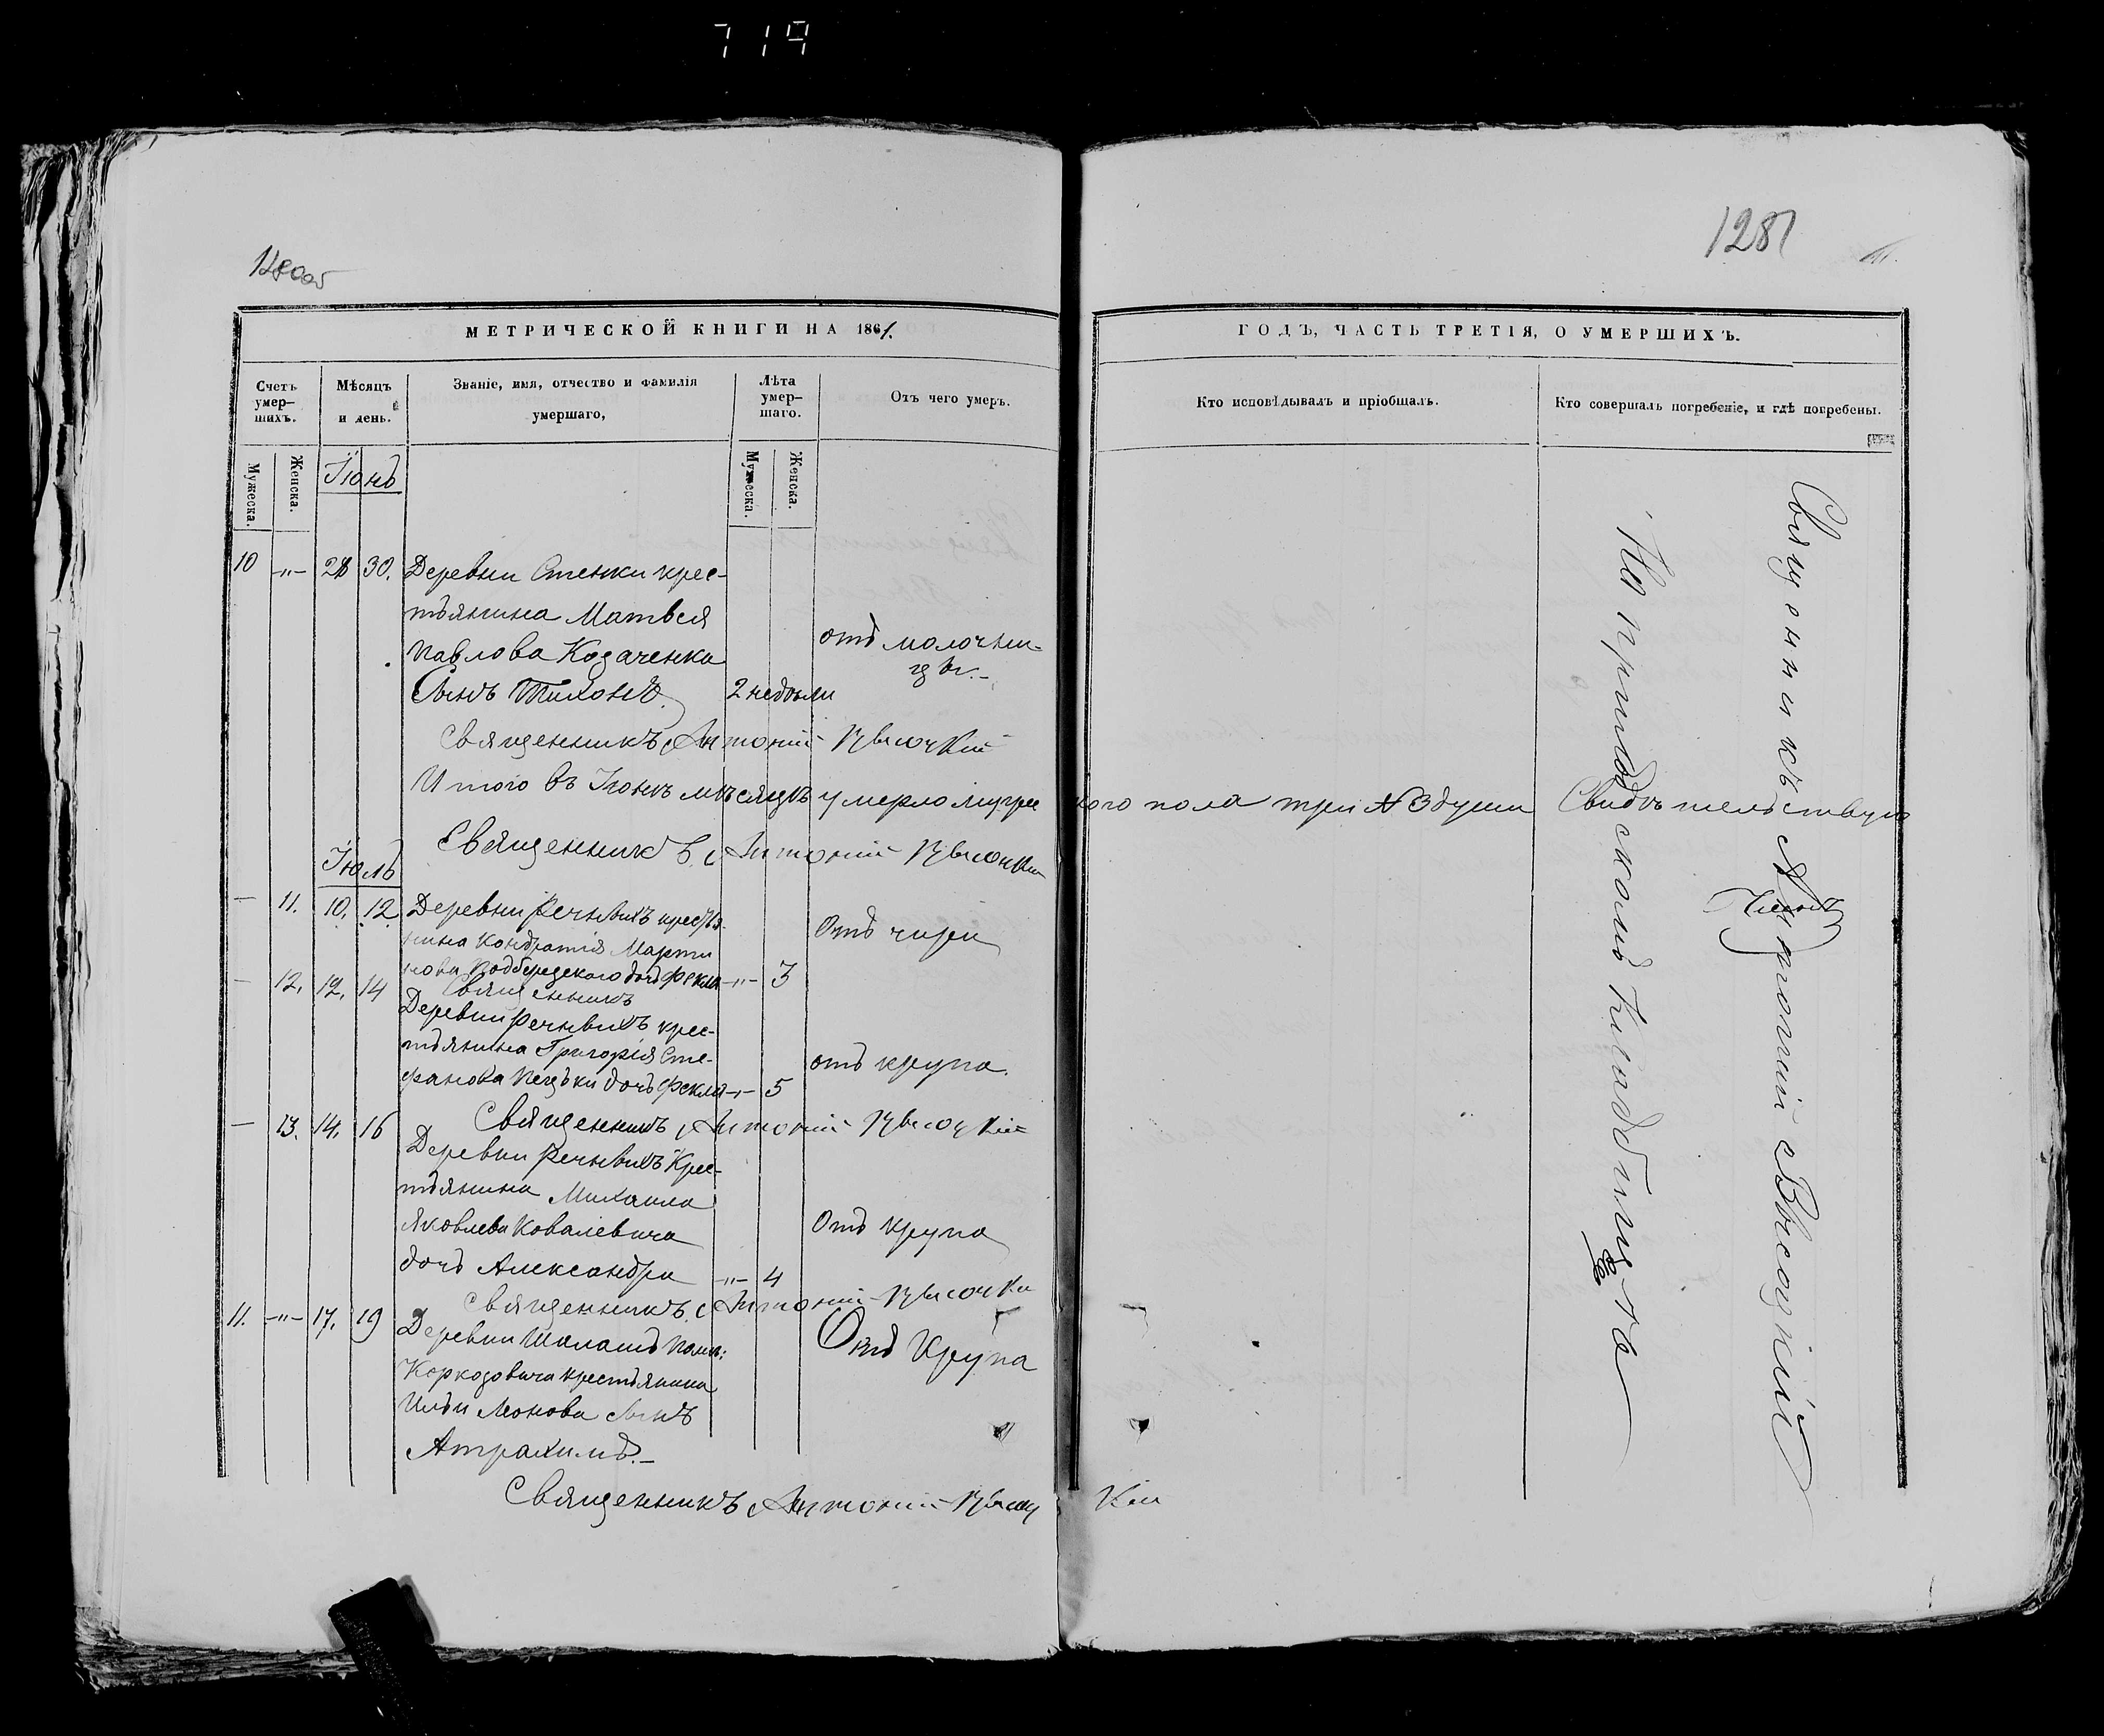 719
1280об
1281
МЕТРИЧЕСКОЙ КНИГИ НА 1861.
ГОДЪ, ЧАСТЬ ТРЕТІЯ, О УМЕРШИХЪ.
Счетъ умер-
шихъ.
Мѣсяцъ
и день.
Званіе, имя, отчество и фамилія
умершаго,
Лѣта
умер-
шаго.
Отъ чего умеръ.
Кто исповѣдывалъ и пріобщалъ.
Кто совершалъ погребеніе, и гдѣ погребены.
Мужеска.
Женска.
Мужеска.
Женска.
Іюнь
10 -"- 28 30. Деревни Стенки крес-
тьянина Матвея
Павлова Козаченка
отъ молочни-
Сынъ Тихонъ. 2 недѣли
Священникъ Антоній Высоцкій
Итого въ Іюнѣ мѣсяцѣ умерло мужес кого пола три № 3 души Свидѣтельствую
Священникъ Антоній Высоцкій
Іюль
— 11. 10. 12. Деревни Речныхъ крестья-
нина Кондратія Марти
нова Подберезского дочь Фекла -"- 3
Отъ
— 12. 12. 14 Священникъ
Деревни Речныхъ крес-
тьянина Григорія Сте-
фанова дочь Фекла -"- 5
отъ крупа.
Священникъ Антоній Высоцкій
— 13. 14. 16 Деревни Речныхъ Крес-
тьянина Михаила
Яковлева Ковалевича
Отъ крупа
дочь Александра -"- 4
Священникъ Антоній Высоцкій
11. -"- 17. 19 Деревни Шалашъ Пом:
Коркозовича крестьянина
Отъ Крупа
Ильи Леонова Сынъ
Священникъ Антоній Высоцкій
На приходскомъ кладбищѣ
Священникъ Антоній Высоцкій